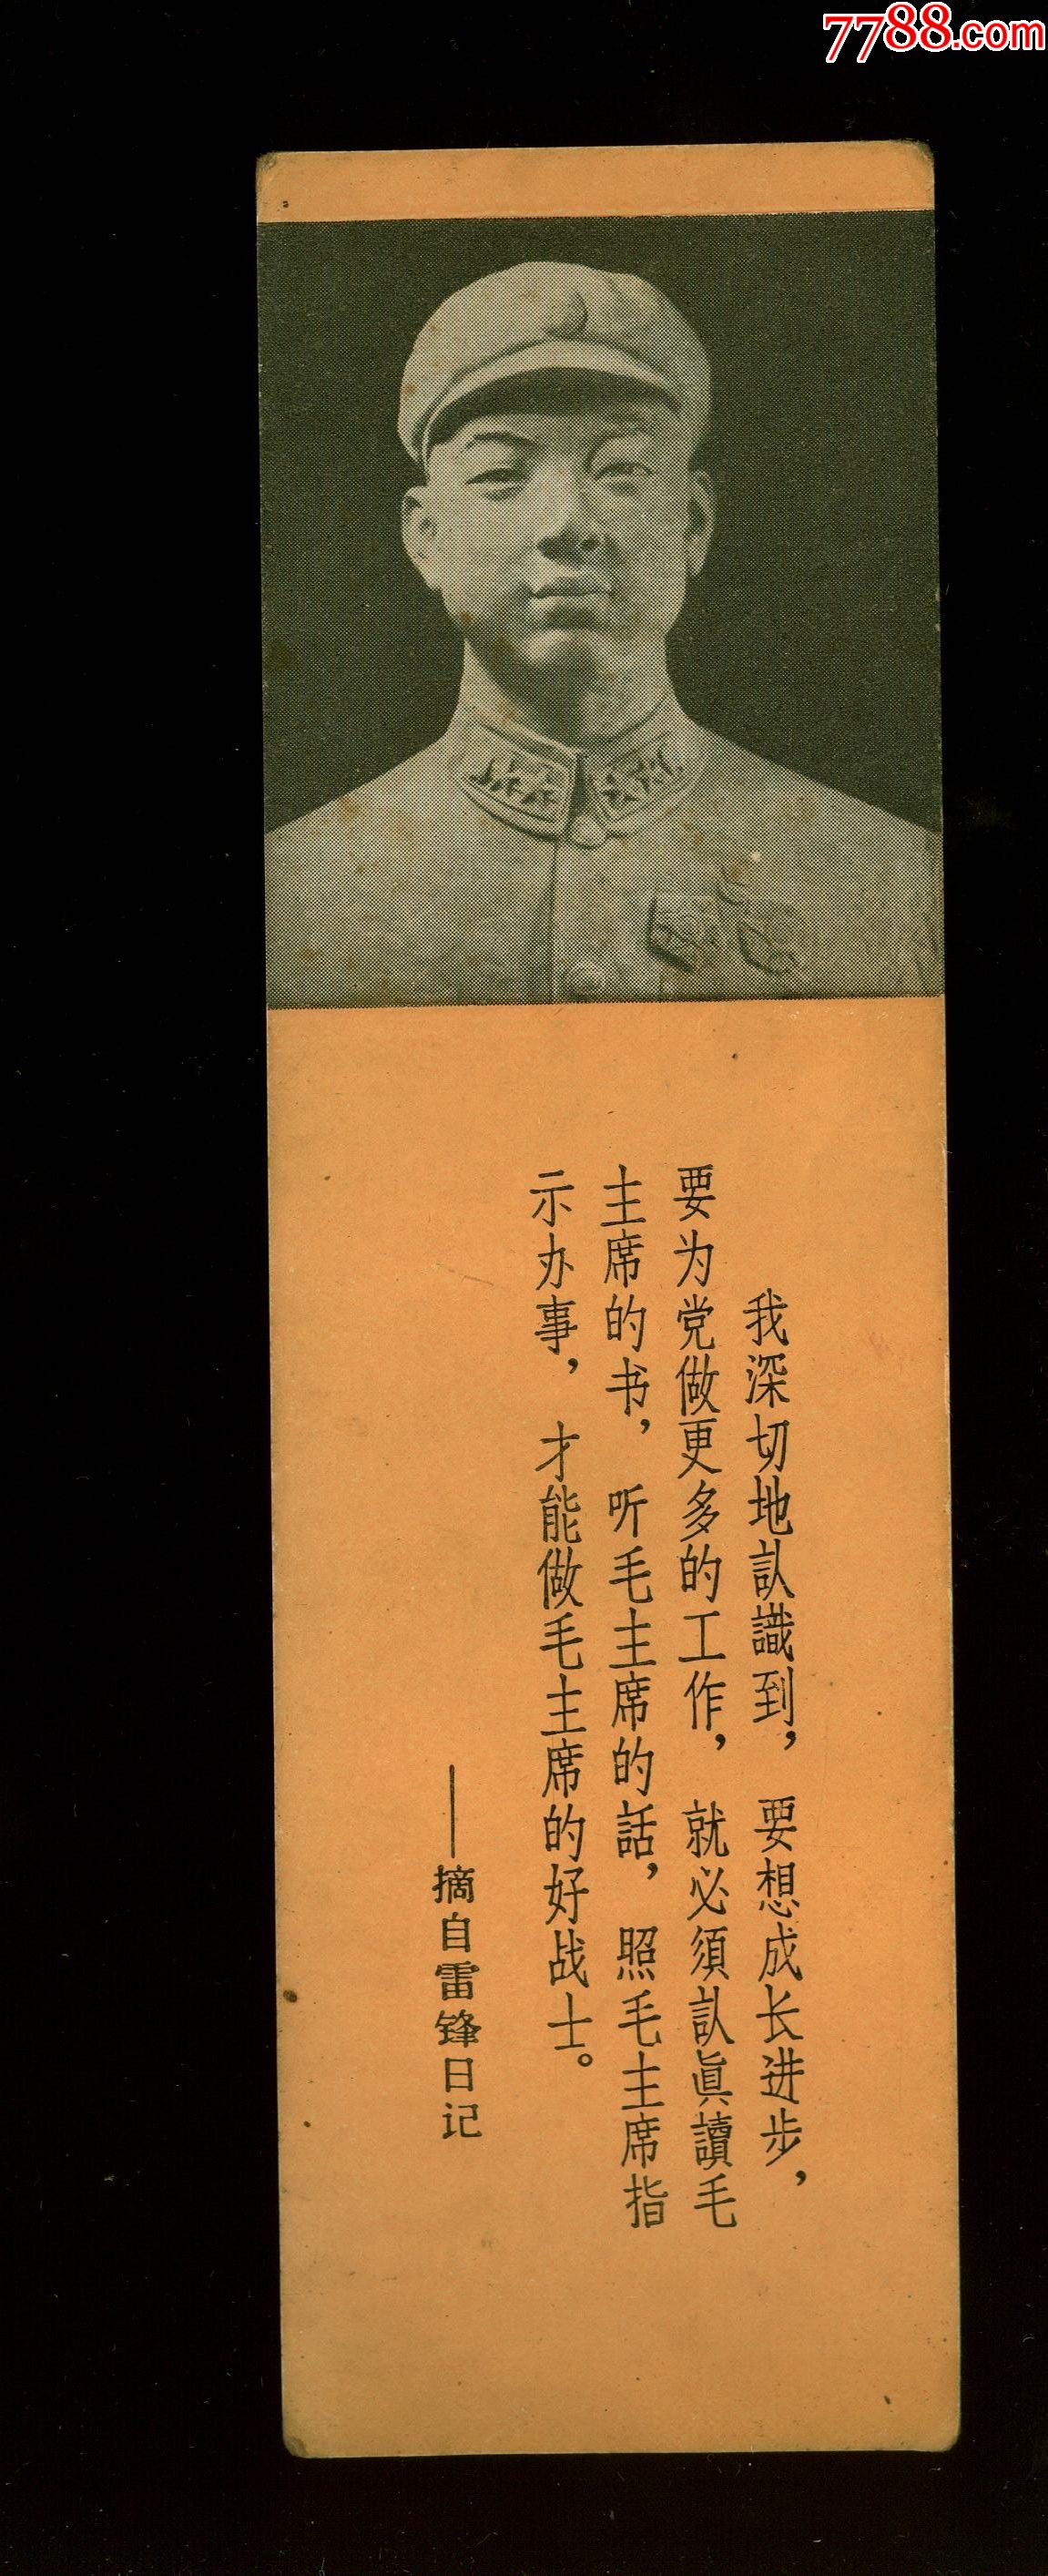 7788.com
我深切地訫識到，要想成长进步，
要为党做更多的工作，就必须訫眞讀毛
主席的书，听毛主席的話，照毛主席指
示办事，才能做毛主席的好战士。
——摘自雷锋日记